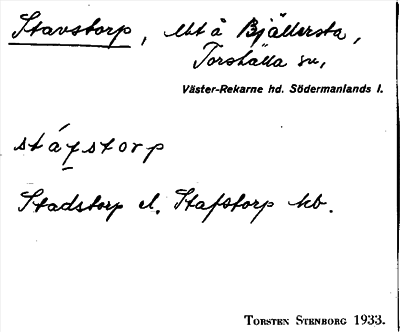 Stavstorp, lht å Bjällersta,
Torshälla sn,
Väster-Rekarne hd. Södermanlands l.
Stadstorp el. Stafstorp kb.
TORSTEN STENBORG 1933.